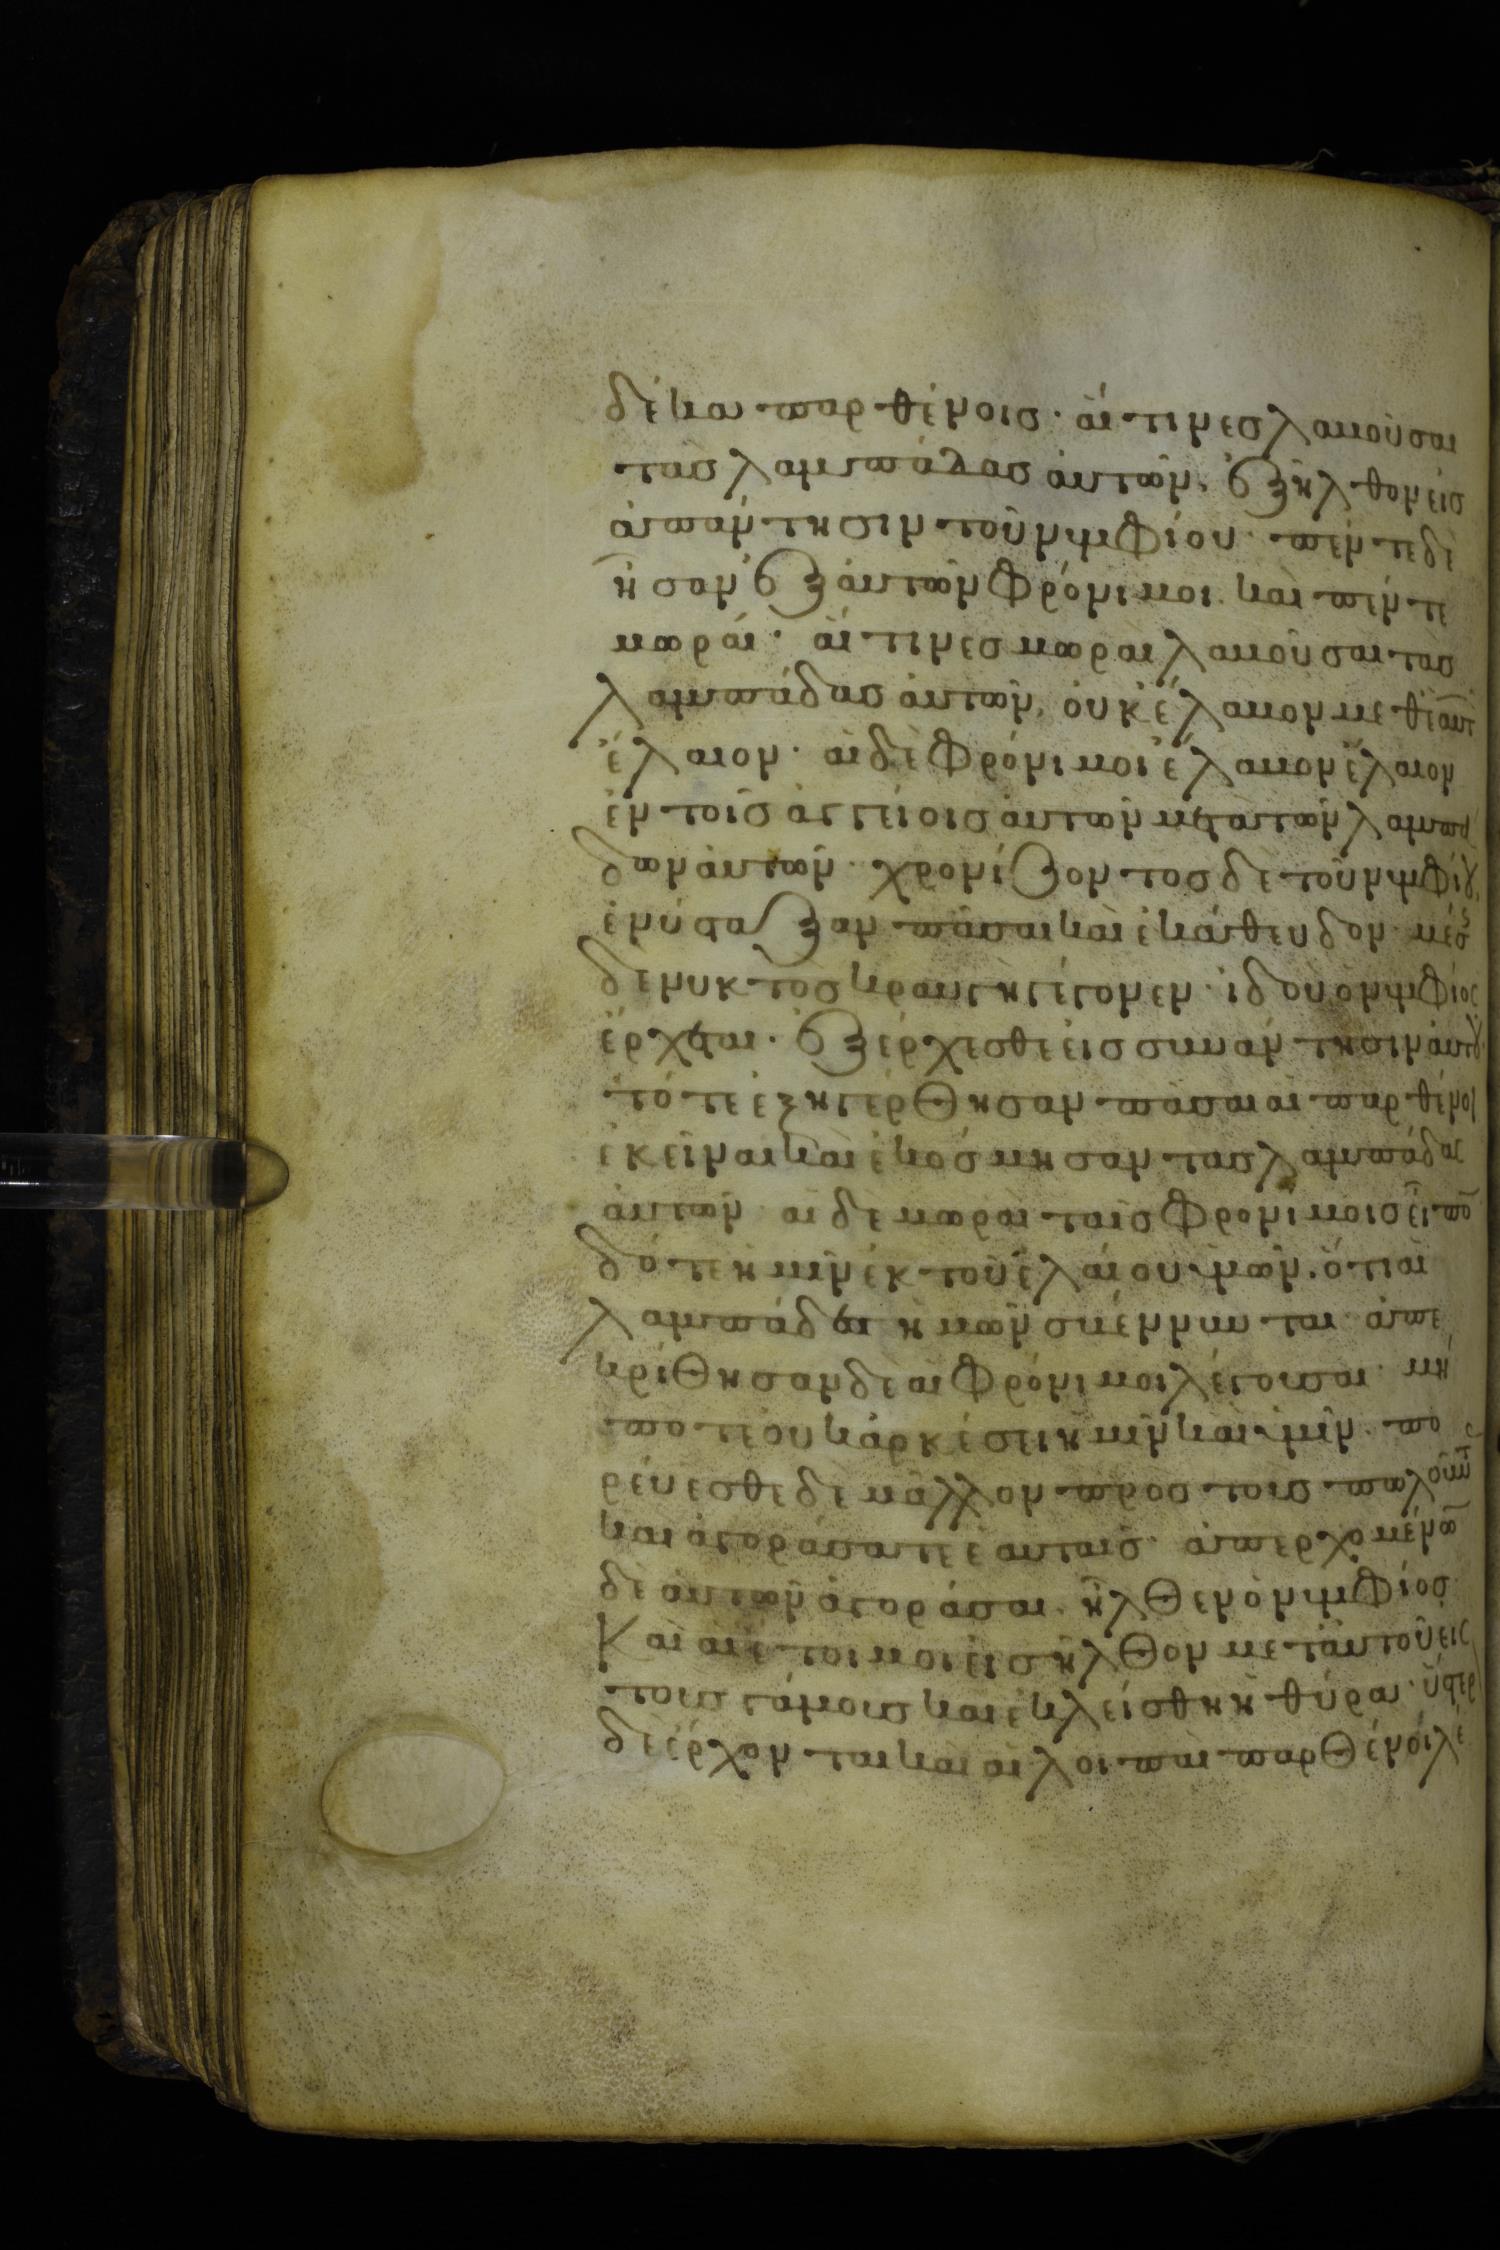 δέκα παρθένοις· αἵ τινες λαβοῦσαι
τὰς λαμπάδας ἀυτῶν, ἐξῆλθον εἰσ
ἀπάντησιν τοῦ νυμφίου· πέντε δὲ
ἦσαν ἐξ ἀυτῶν φρόνιμοι· καὶ πέντε
μωραί· αἵ τινες μωραὶ λαβοῦσαι τὰσ
λαμπάδας ἀυτῶν, ὀυκ ἔλαβον μεθ ἑαυτῶν
ἔλαιον· αἱ δὲ φρόνιμοι ἔλαβον ἔλαιον
ἐν τοῖς ἀγγείοις ἀυτῶν μετὰ τῶν λαμπά
δων ἀυτῶν· χρονίζοντος δὲ τοῦ νυμφίου,
ἐνύσταξαν πᾶσαι καὶ ἐκάθευδον· μέσης
δὲ νυκτὸς κραυγὴ γέγονεν· ἰδοὺ ὁ νυμφίος
ἔρχεται· ἐξέρχεσθε εἰς συνάντησιν ἀυτοῦ
τότε ἐξηγέρθησαν πᾶσαι αἱ παρθένοι
ἐκεῖναι καὶ ἐκόσμησαν τὰς λαμπάδας
ἀυτῶν· αἱ δὲ μωραὶ ταῖς φρονίμοις εἶπον
δότε ἡμῖν ἐκ τοῦ ἐλαίου ὑμῶν, ὅτι αἱ
λαμπάδες ἡμῶν σβέννυνται· ἀπε
κρίθησαν δὲ αἱ φρόνιμοι λέγουσαι· μή
ποτε ὀυκ ἀρκέσει ἡμῖν καὶ ὑμῖν· πο
ρεύεσθε δὲ μᾶλλον πρὸς τοὺς πωλοῦντας
καὶ ἀγοράσατε ἑαυταῖς· ἀπερχομένων
δὲ ἀυτῶν ἀγοράσαι· ἦλθεν ὁ νυμφίος·
Καὶ αἱ ἕτοιμοι εἰσῆλθον μετ ἀυτοῦ εἰς
τοὺς γάμους καὶ ἐκλείσθη ἡ θύρα· ὕστερον
δὲ ἔρχονται καὶ αἱ λοιπαὶ παρθένοι λέ